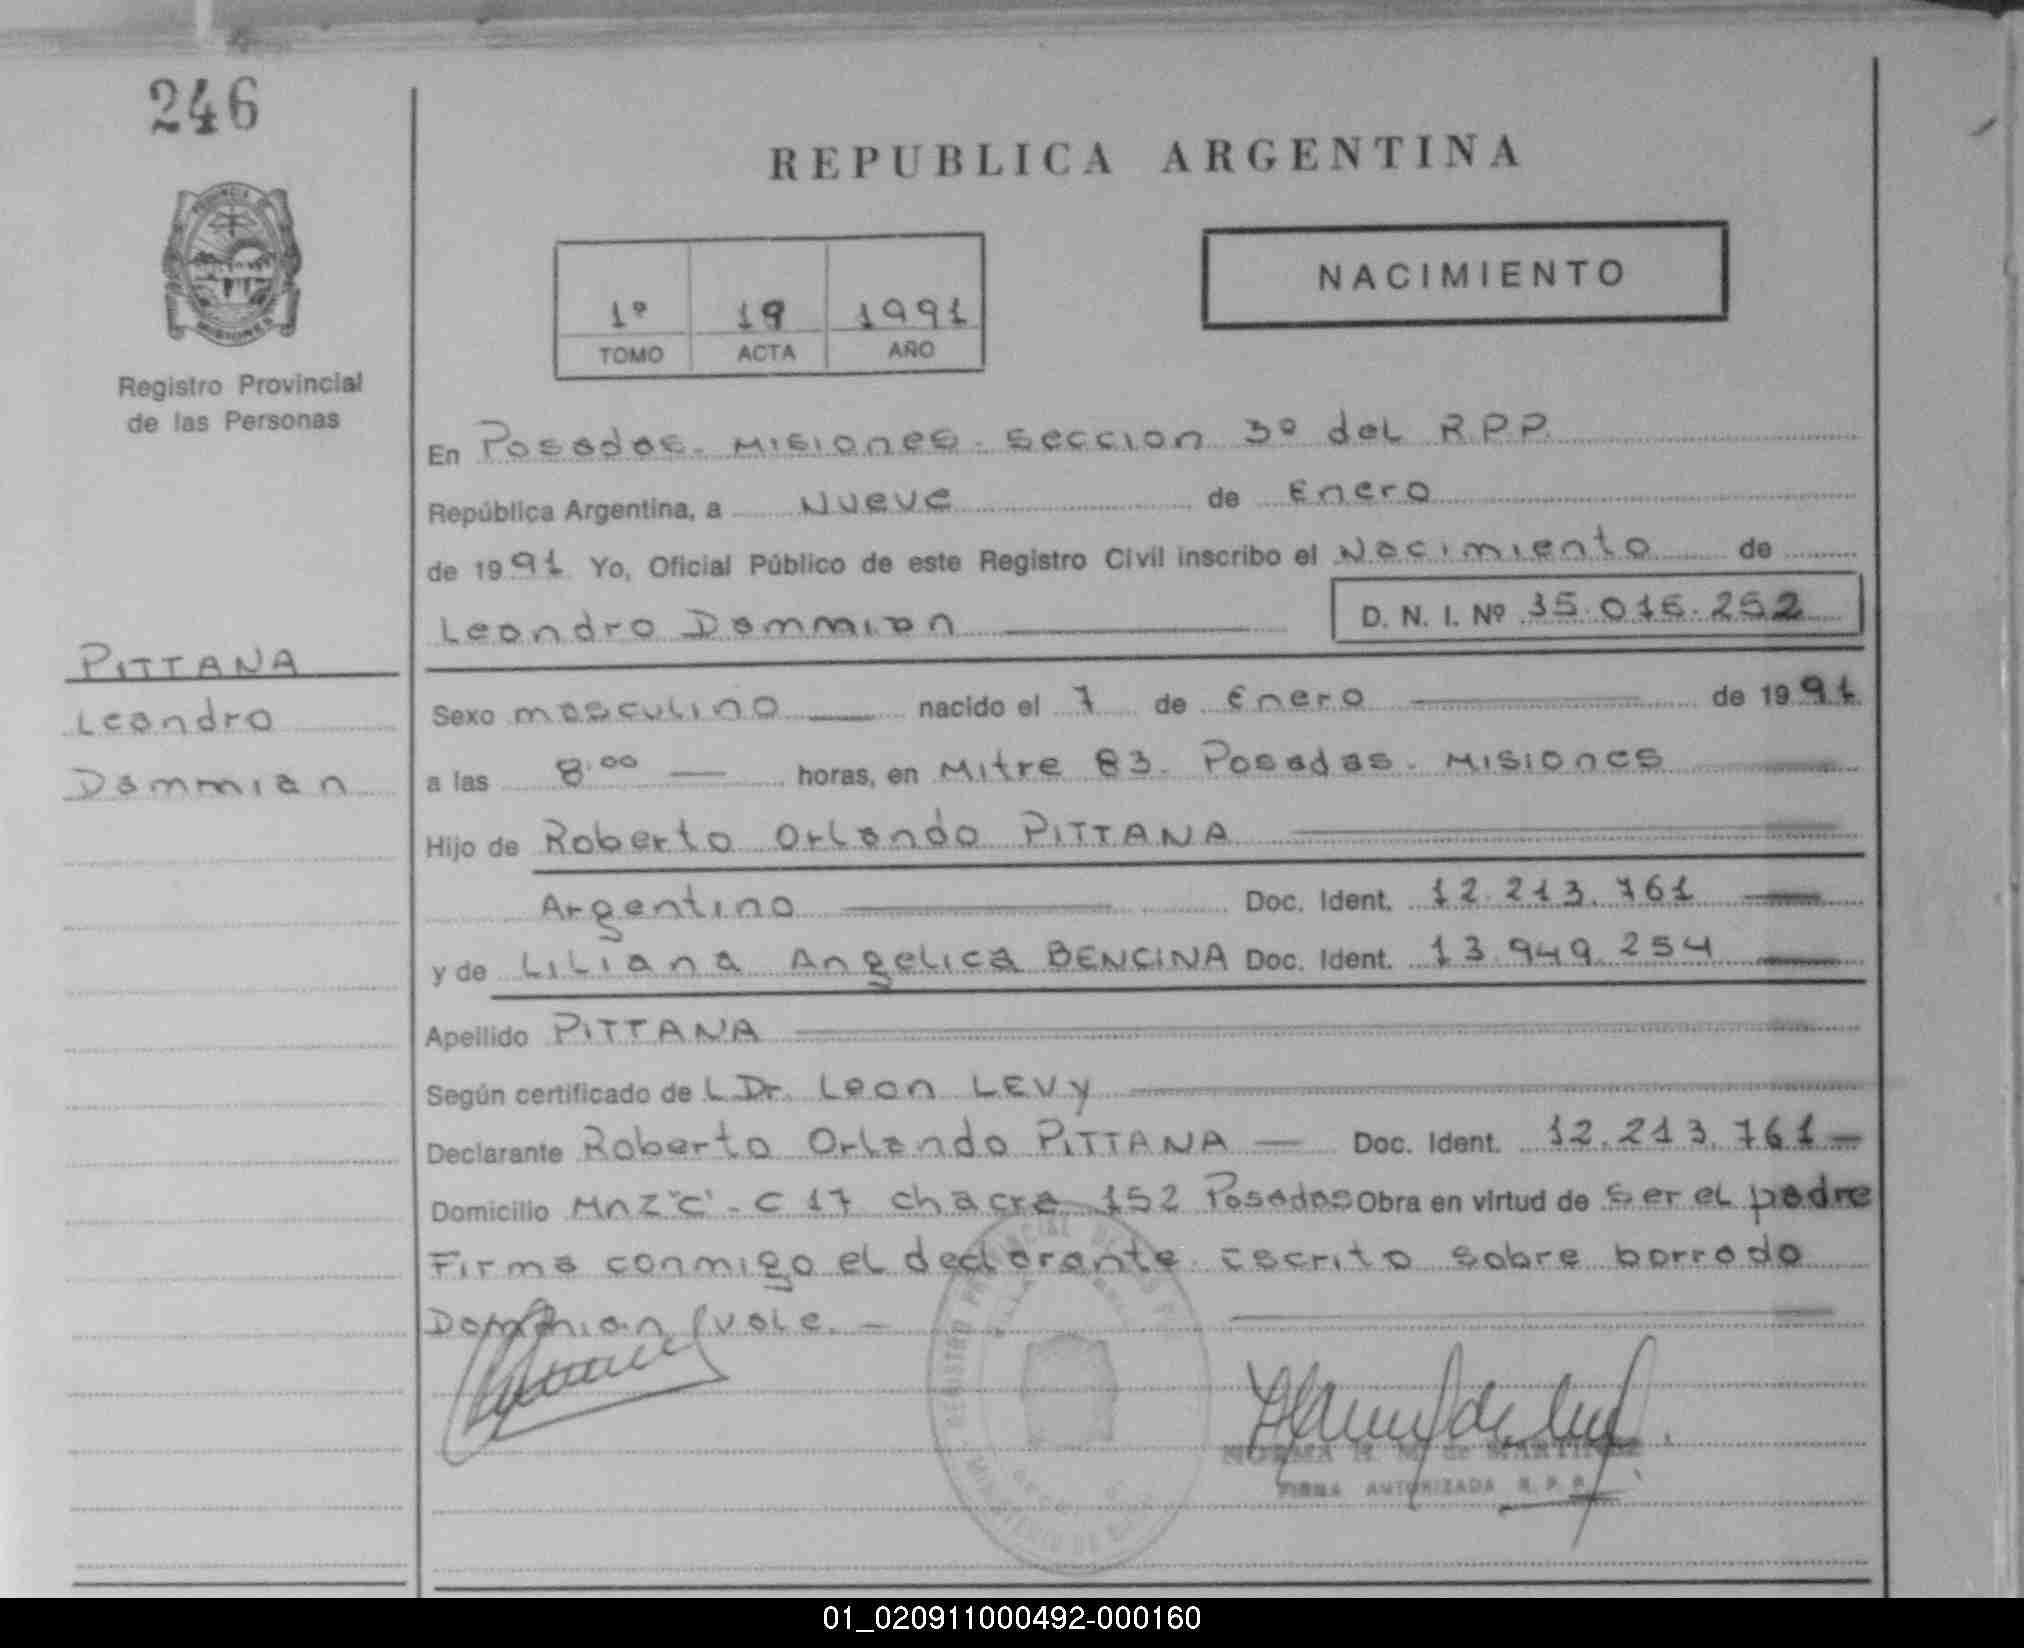 246
REPUBLICA ARGENTINA
NACIMIENTO
1º 19 1991
TOMO ACTA AÑO
PROVINCIA DE
MISIONES
Registro Provincial
de las Personas
En Posadas. Misiones. Seccion 3º del R.P.P.
República Argentina, a Nueve de Enero
de 1991 Yo, Oficial Público de este Registro Civil inscribo el Nacimiento de
Leandro Dammian D. N. I. Nº 35.016.252
PITTANA
Leandro
Dammian
Sexo masculino nacido el 7 de Enero de 1991
a las 8.00 horas, en Mitre 83. Posadas. Misiones
Hijo de Roberto Orlando PITTANA
Argentino Doc. Ident. 12.213.761
y de Liliana Angelica BENCINA Doc. Ident. 13.949.254
Apellido PITTANA
Según certificado de L Dr. Leon LEVY
Declarante Roberto Orlando PITTANA — Doc. Ident. 12.213.761 —
Domicilio Mnz "C" - C 17 chacra 152 Posadas Obra en virtud de ser el padre
Firma conmigo el declarante. Escrito sobre borrado
Dammian vale. —
REGISTRO PROVINCIAL DE LAS P
MINISTERIO DE
NORMA H. M. de MARTINEZ
FIRMA AUTORIZADA R. P. P.
01_020911000492-000160